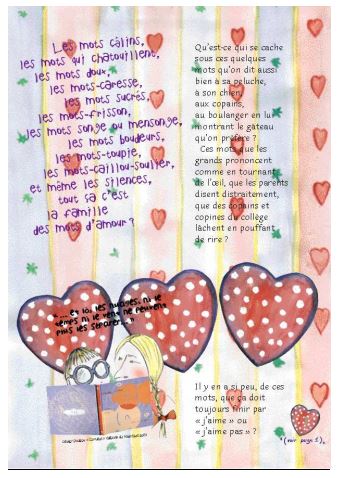 Les mots câlins,
les mots qui chatouillent,
les mots doux,
les mots-caresse,
les mots sucrés,
les mots-frisson,
les mots songe ou mensonge,
les mots boudeurs,
les mots-toupie,
les mots-caillou-soulier,
et même les silences,
tout ça c'est
la famille
des mots d'amour ?
Qu'est-ce qui se cache
sous ces quelques
mots qu'on dit aussi
bien à sa peluche,
à son chien,
aux copains,
au boulanger en lui
montrant le gâteau
qu'on préfère ?
Ces mots que les
grands prononcent
comme en tournant
de l'œil, que les parents
disent distraitement,
que des copains et
copines du collège
lâchent en pouffant
de rire ?
"... et ici, les nuages, ni le
temps ni le vent ne peuvent
plus les séparer..."
Il y en a si peu, de ces
mots, que ça doit
toujours finir par
« j'aime » ou
« j'aime pas » ?
*(voir page 1).